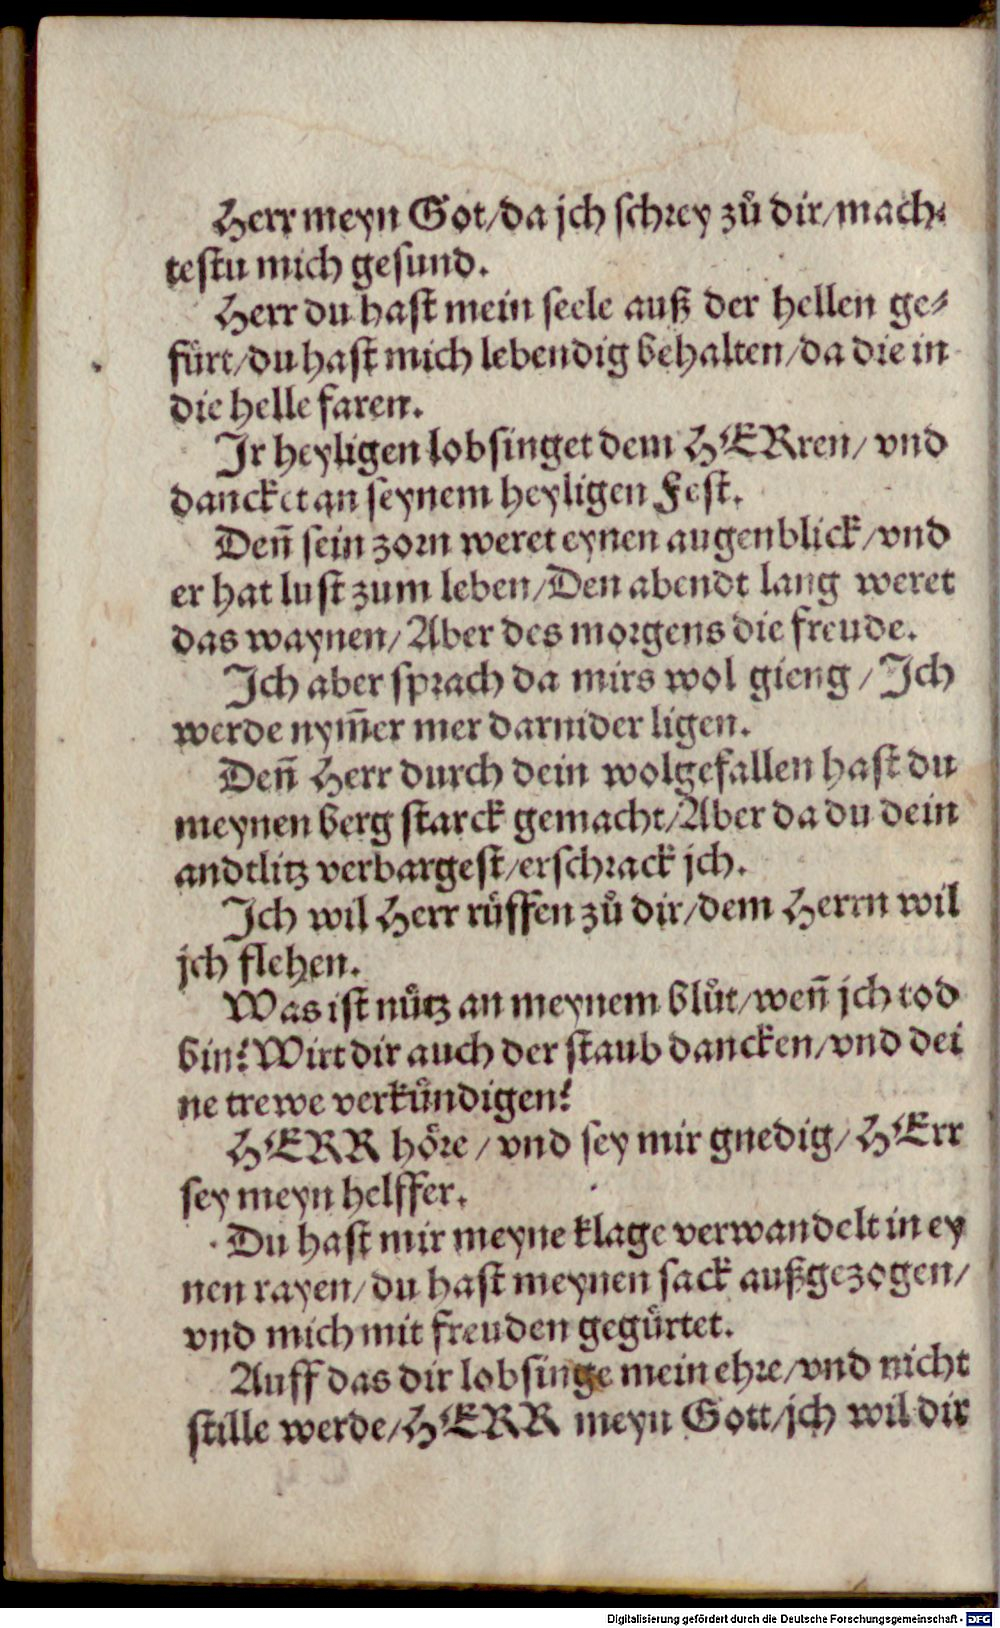 Herr meyn Got/da jch schrey zů dir/mach-
testu mich gesund.
Herr du hast mein seele auß der hellen ge-
fürt/du hast mich lebendig behalten/da die in
die helle faren.
Jr heyligen lobsinget dem HERren/ vnd
dancket an seynem heyligen Fest.
Deñ sein zorn weret eynen augenblick/vnd
er hat lust zum leben/Den abendt lang weret
das waynen/Aber des morgens die freude.
Jch aber sprach da mirs wol gieng/Jch
werde nym̃er mer darnider ligen.
Deñ Herr durch dein wolgefallen hast du
meynen berg starck gemacht/Aber da du dein
andtlitz verbargest/erschrack jch.
Jch wil Herr rüffen zů dir/dem Herrn wil
jch flehen.
Was ist nütz an meynem blůt/weñ jch tod
bin? Wirt dir auch der staub dancken/vnd dei
ne trewe verkündigen?
HERR höre/vnd sey mir gnedig/HErr
sey meyn helffer.
Du hast mir meyne klage verwandelt in ey
nen rayen/du hast meynen sack außgezogen/
vnd mich mit freuden gegürtet.
Auff das dir lobsinge mein ehre/vnd nicht
stille werde/HERR meyn Gott/jch wil dir
Digitalisierung gefördert durch die Deutsche Forschungsgemeinschaft - DFG